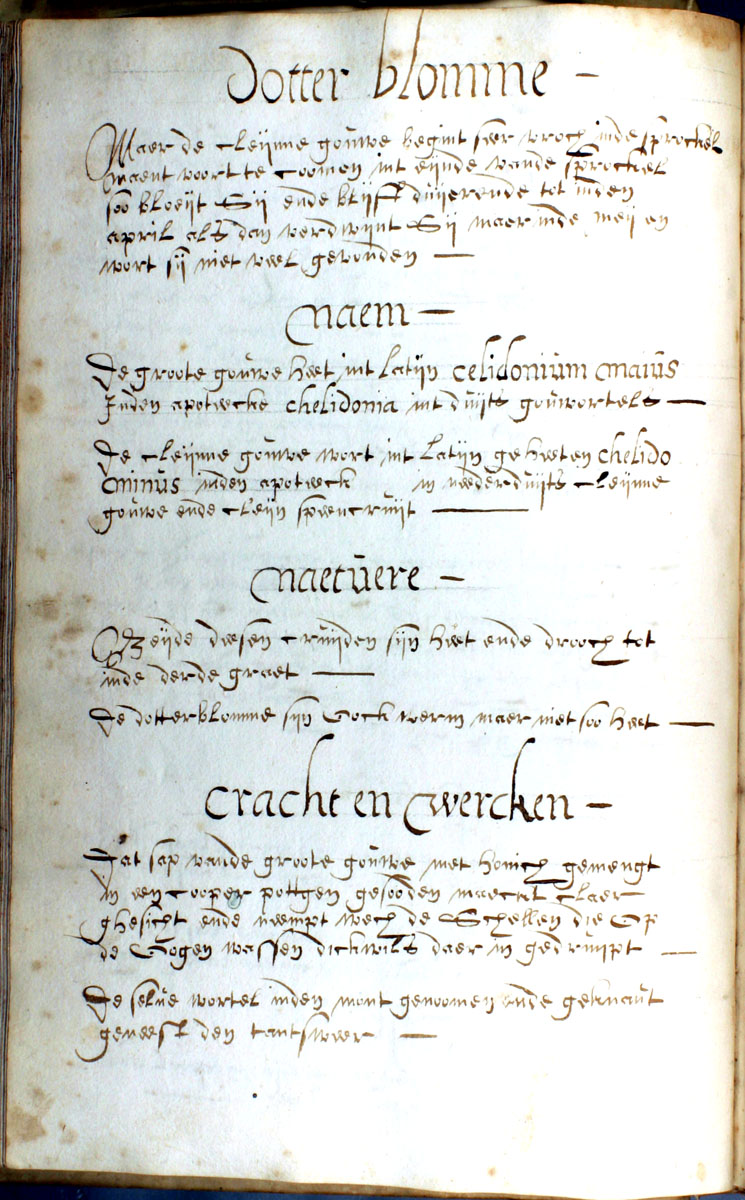 dotter blomme –
Maer de cleijnne gouwe begint seer vroch inde sprockel
maent voort te coomen int eijnde vande sprockel
soo bloeijt Sij ende blijft duijerende tot inden
april als dan verdwijnt Sij maer inde meij en
wort sij niet veel gevonden —
Naem –
De groote gouwe heet int latijn celidonium maius
Inden apotecke chelidonia int duijts gouwortels —
De cleijnne gouwe wort int latijn geheeten chelido
minus inden apoteeck in neederduijts cleijnne
gouwe ende cleijn speencruijt —
Naetuere –
Beijde deesen cruijden sijn heet ende drooch tot
inde derde graet —
De dotterblomme sijn Oock werm maer niet soo heet —
Cracht en Wercken –
Dat sap vande groote gouwe met honich gemengt
in een cooper pottgen gesooden maeckt claer
ghesicht ende neempt wech de Schellen die Op
de Oogen wassen dickwils daer in gedruipt —
De selve wortel inden mont genoomen ende geknaut
geneest den tantsweer —